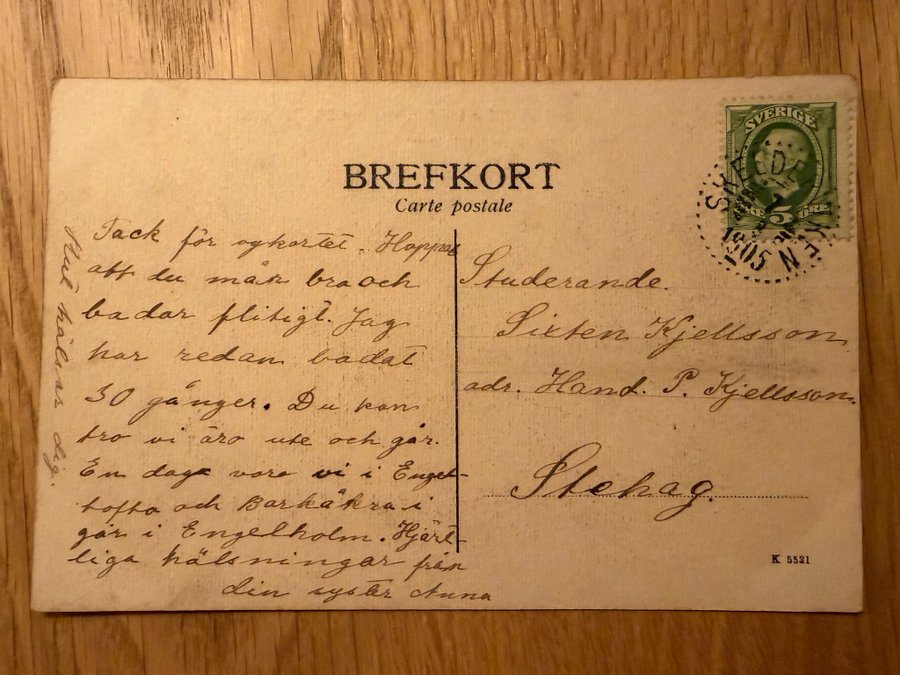 BREFKORT
Carte postale
SVERIGE
5 ÖRE
1905
Tack för vykortet. Hoppas
att du mår bra och
badar flitigt. Jag
har redan badat
30 gånger. Du kan
tro vi äro ute och går.
En dag voro vi i Engel-
tofta och Barkåkra i
går i Engelholm. Hjärt-
liga hälsningar från
din syster Anna
Rut hälsar dig.
Studerande.
Sixten Kjellsson
adr. Hand. P. Kjellsson.
Stehag.
K 5521